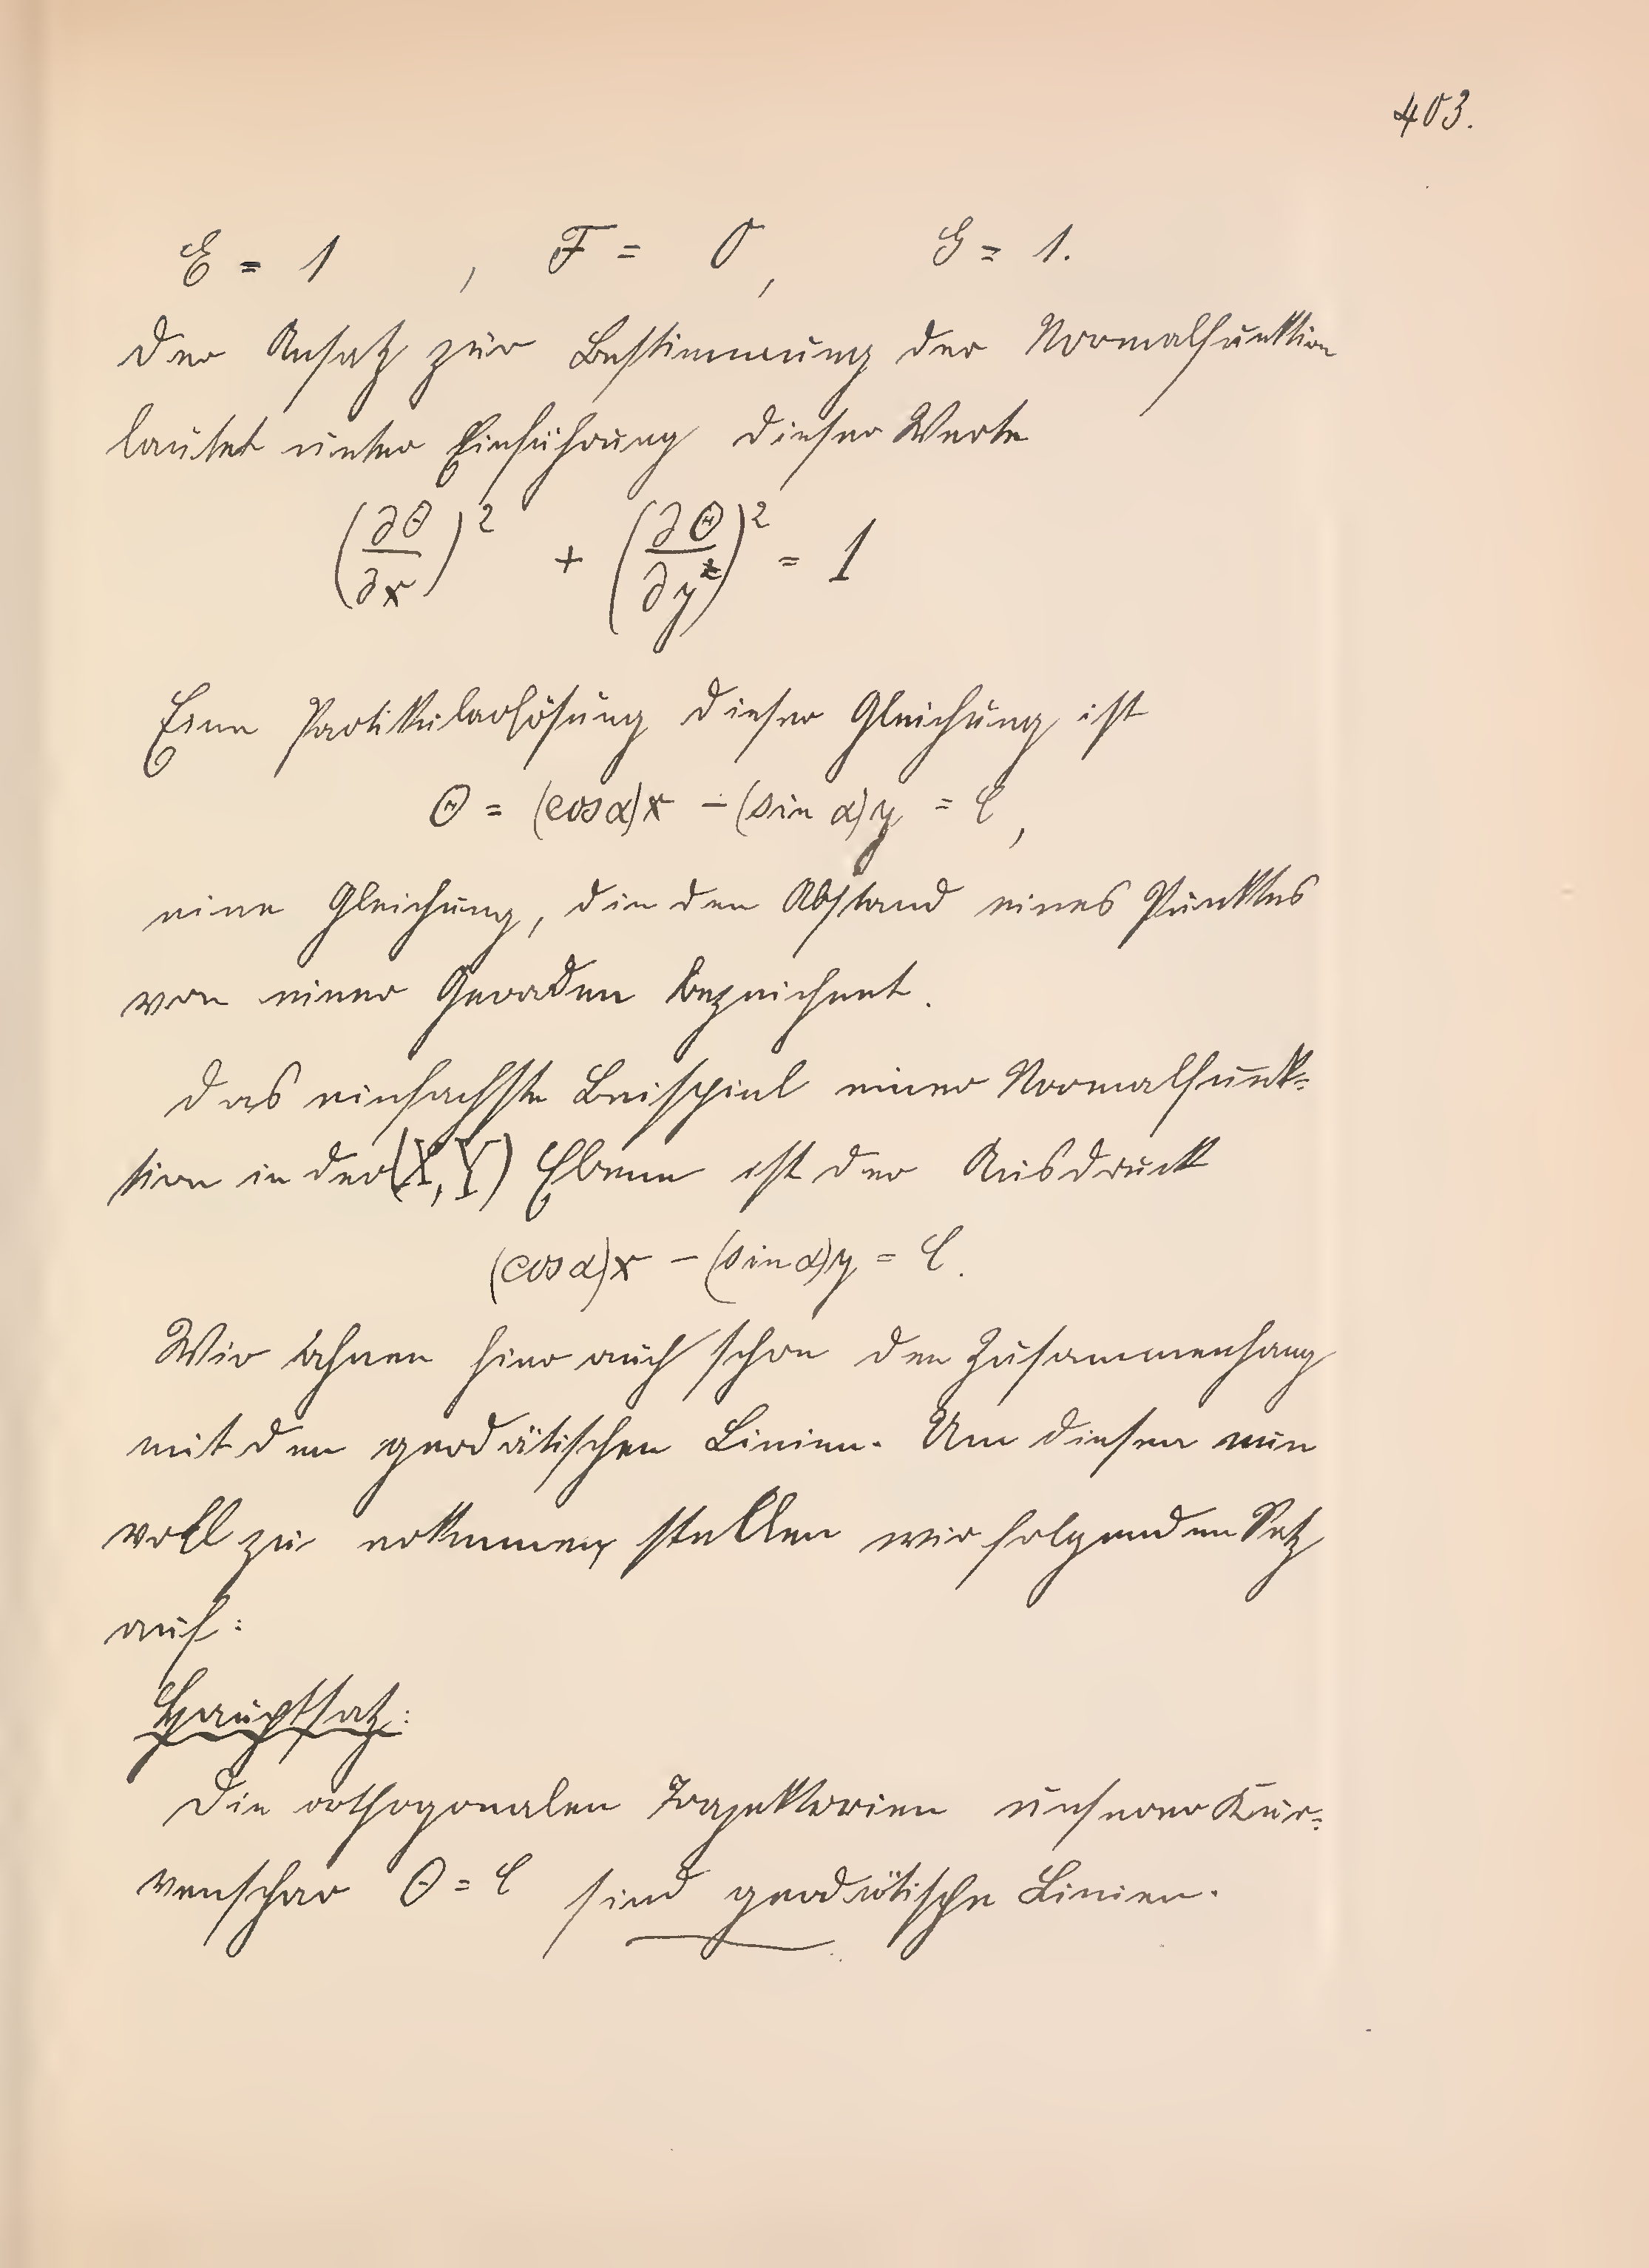 403.
E = 1 , F = 0, G = 1.
Der Ansatz zur Bestimmung der Normalfunktion
lautet unter Einführung dieser Werte
(∂Θ/∂x)² + (∂Θ/∂y)² = 1
Eine Partikularlösung dieser Gleichung ist
Θ = (cos α)x − (sin α)y = C,
eine Gleichung, die den Abstand eines Punktes
von einer Geraden bezeichnet.
Das einfachste Beispiel einer Normalfunk-
tion in der (X, Y) Ebene ist der Ausdruck
(cos α)x − (sin α)y = C.
Wir ahnen hier auch schon den Zusammenhang
mit den geodätischen Linien. Um diesen nun
voll zu erkennen, stellen wir folgenden Satz
auf:
Hauptsatz:
Die orthogonalen Trajektorien unserer Kur-
venschar Θ = C sind geodätische Linien.